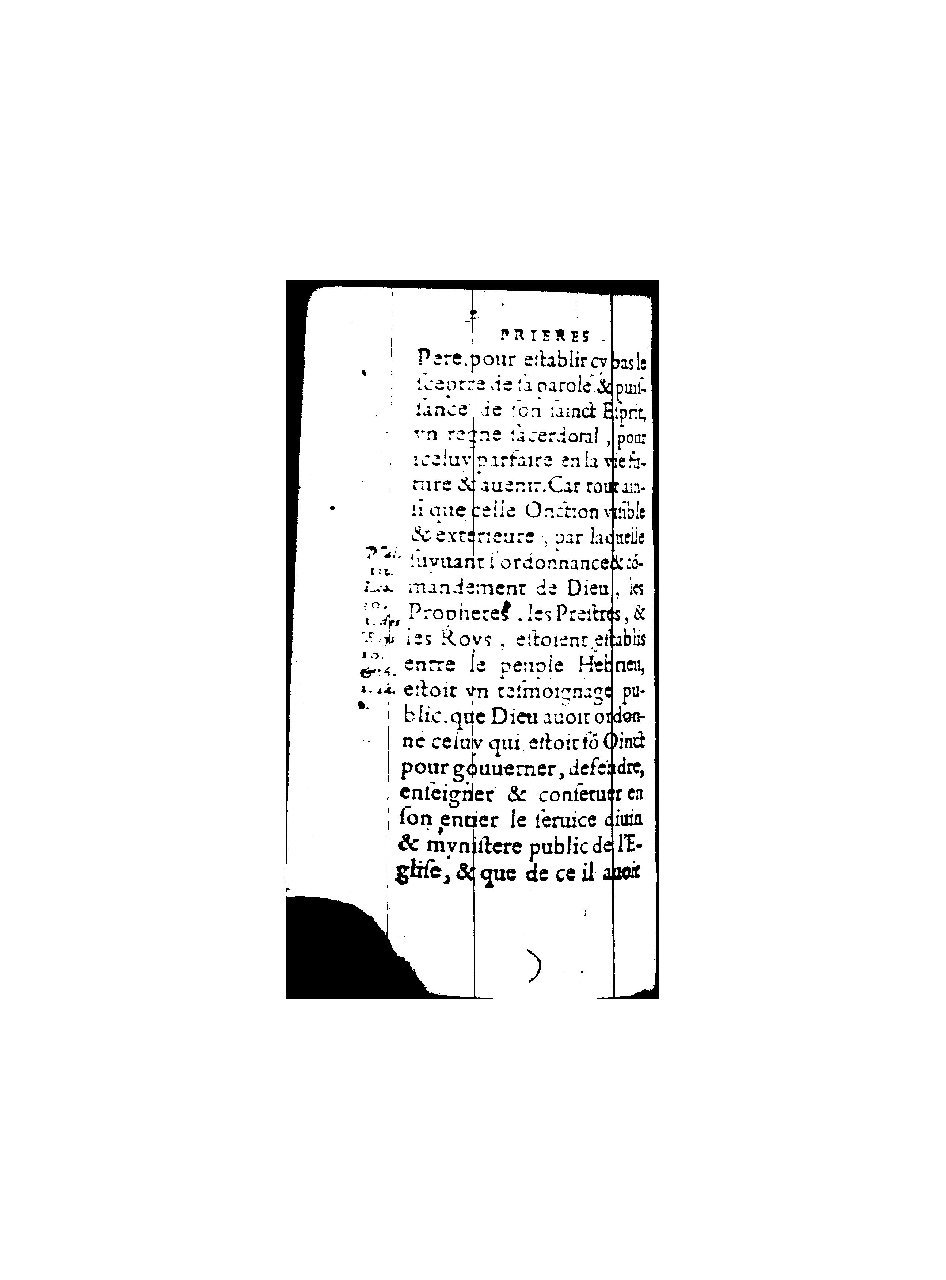 PRIERES.
Pere, pour establir cy bas le
sceptre de sa parole & puis-
sance de son sainct Esprit,
vn regne sacerdotal, pour
iceluy parfaire en la vie fu-
ture & auenir. Car tout ain-
si que celle Onction visible
& exterieure, par laquelle
suyuant l'ordonnance & cõ-
mandement de Dieu, les
Prophetes, les Prestres, &
les Roys, estoient establis
entre le peuple Hebrieu,
estoit vn tesmoignage pu-
blic, que Dieu auoit ordon-
né celuy qui estoit sõ Oinct
pour gouuerner, defendre,
enseigner & conseruer en
son entier le seruice diuin
& mynistere public de l'E-
glise, & que de ce il auoit